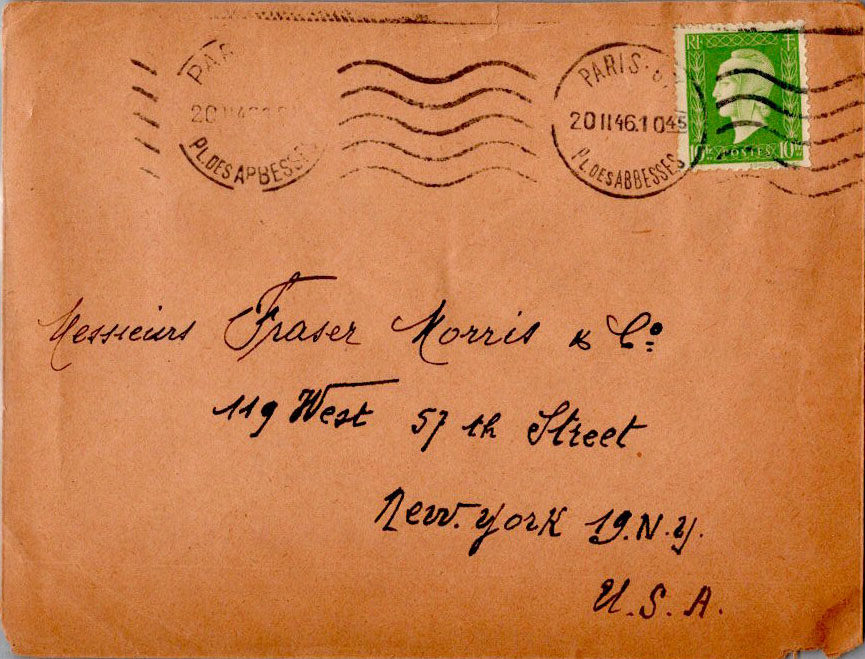 PAR
PL.DES ABBESSES
PARIS
20 II 46.10 45
PL.DES ABBESSES
RF
10 POSTES 10
Messieurs Fraser Morris & Cº
119 West 57 th Street
New.York 19.N.Y.
U.S.A.